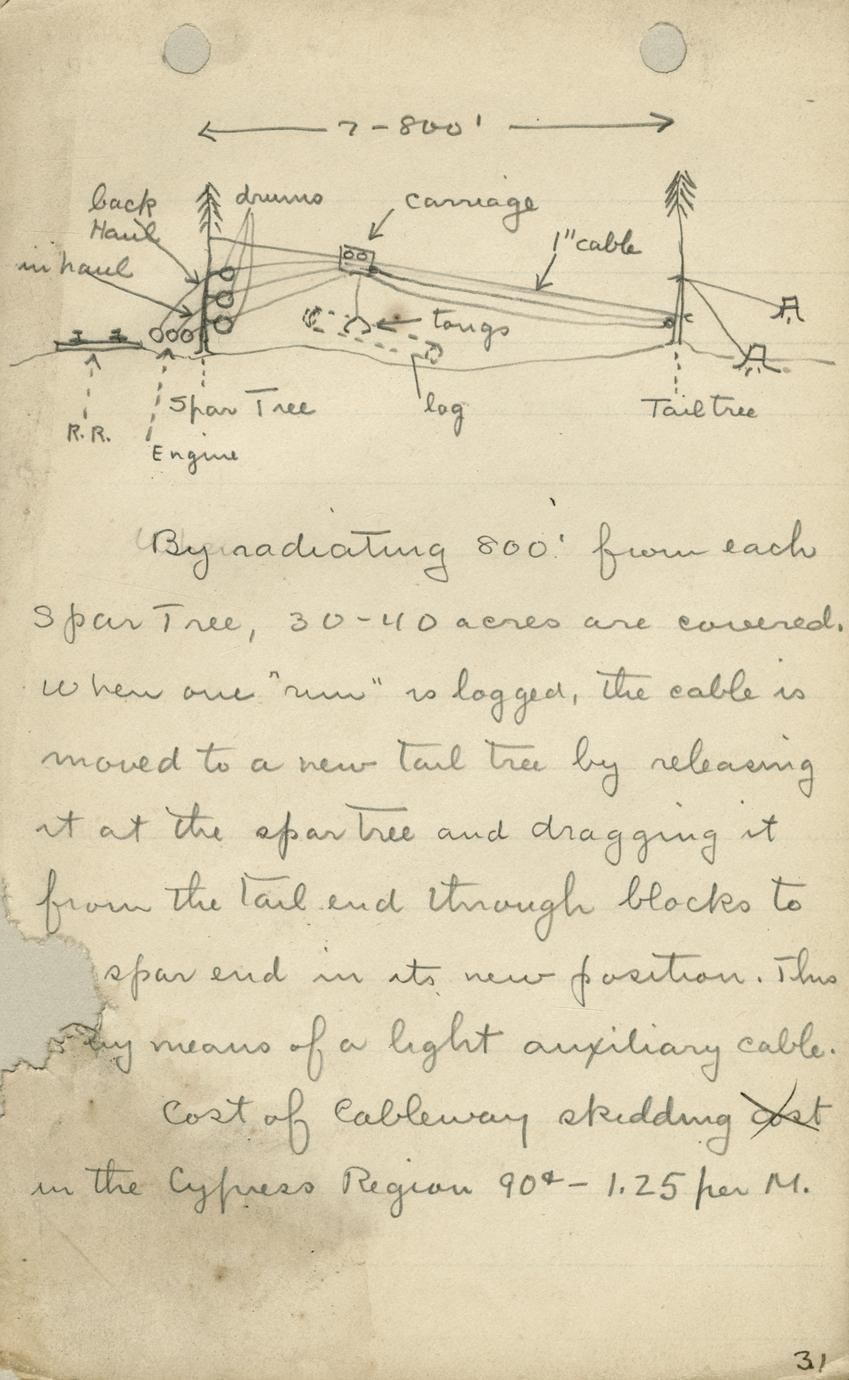 7-800'
back
Haul
drums
carriage
in haul
1" cable
tongs
Spar Tree
log
Tail tree
R.R.
Engine
By radiating 800' from each
Spar Tree, 30-40 acres are covered.
When one "run" is logged, the cable is
moved to a new tail tree by releasing
it at the spar tree and dragging it
from the tail end through blocks to
spar end in its new position. This
by means of a light auxiliary cable.
Cost of Cableway skidding cost
in the Cypress Region 90¢ - 1.25 per M.
31